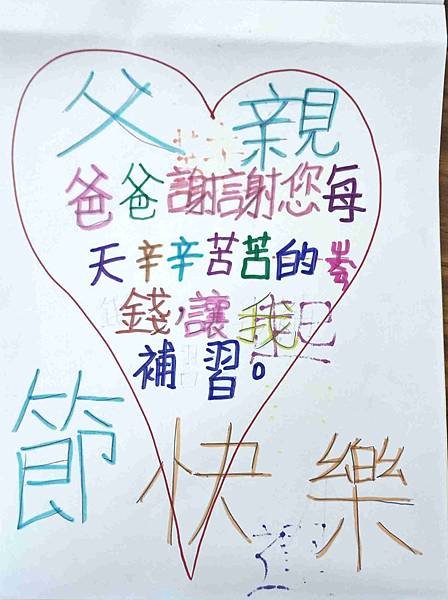 父親
爸爸謝謝您每
天辛辛苦苦的
錢,讓我
補習。
節快樂